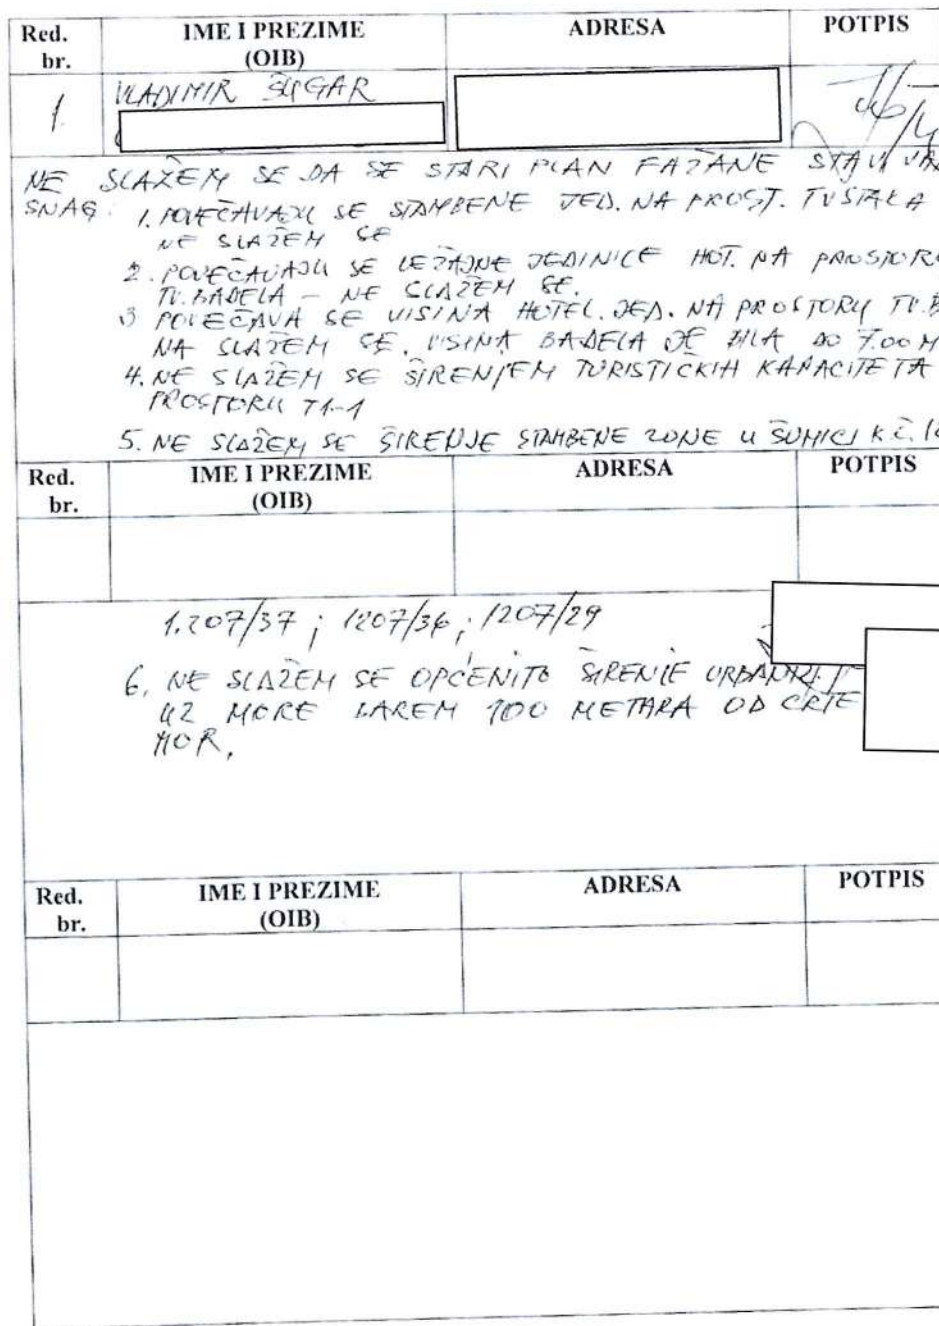 Red. br. IME I PREZIME (OIB) ADRESA POTPIS
1. VLADIMIR ŠUGAR
NE SLAŽEM SE DA SE STARI PLAN FAŽANE STAVI VAN
SNAG. 1. POVEČAVAJU SE STAMBENE JED. NA PROST. TV STARA
NE SLAŽEM SE
2. POVEČAVAJU SE LEŽAJNE JEDINICE HOT. NA PROSTORU
TV. BADELA – NE SLAŽEM SE.
3 POVEČAVA SE VISINA HOTEL. JED. NA PROSTORU TV. B
NA SLAŽEM SE. VISINA BADELA JE BILA DO 7.00 M
4. NE SLAŽEM SE ŠIRENJEM TURISTIČKIH KAPACITETA
PROSTORU T1-1
5. NE SLAŽEM SE ŠIRENJE STAMBENE ZONE U ŠUMICI K.Č.
Red. br. IME I PREZIME (OIB) ADRESA POTPIS
1.207/37 ; 1207/36 ; 1207/29
6. NE SLAŽEM SE OPĆENITO ŠIRENJE
UZ MORE BAREM 100 METARA OD CRTE
MOR.
Red. br. IME I PREZIME (OIB) ADRESA POTPIS